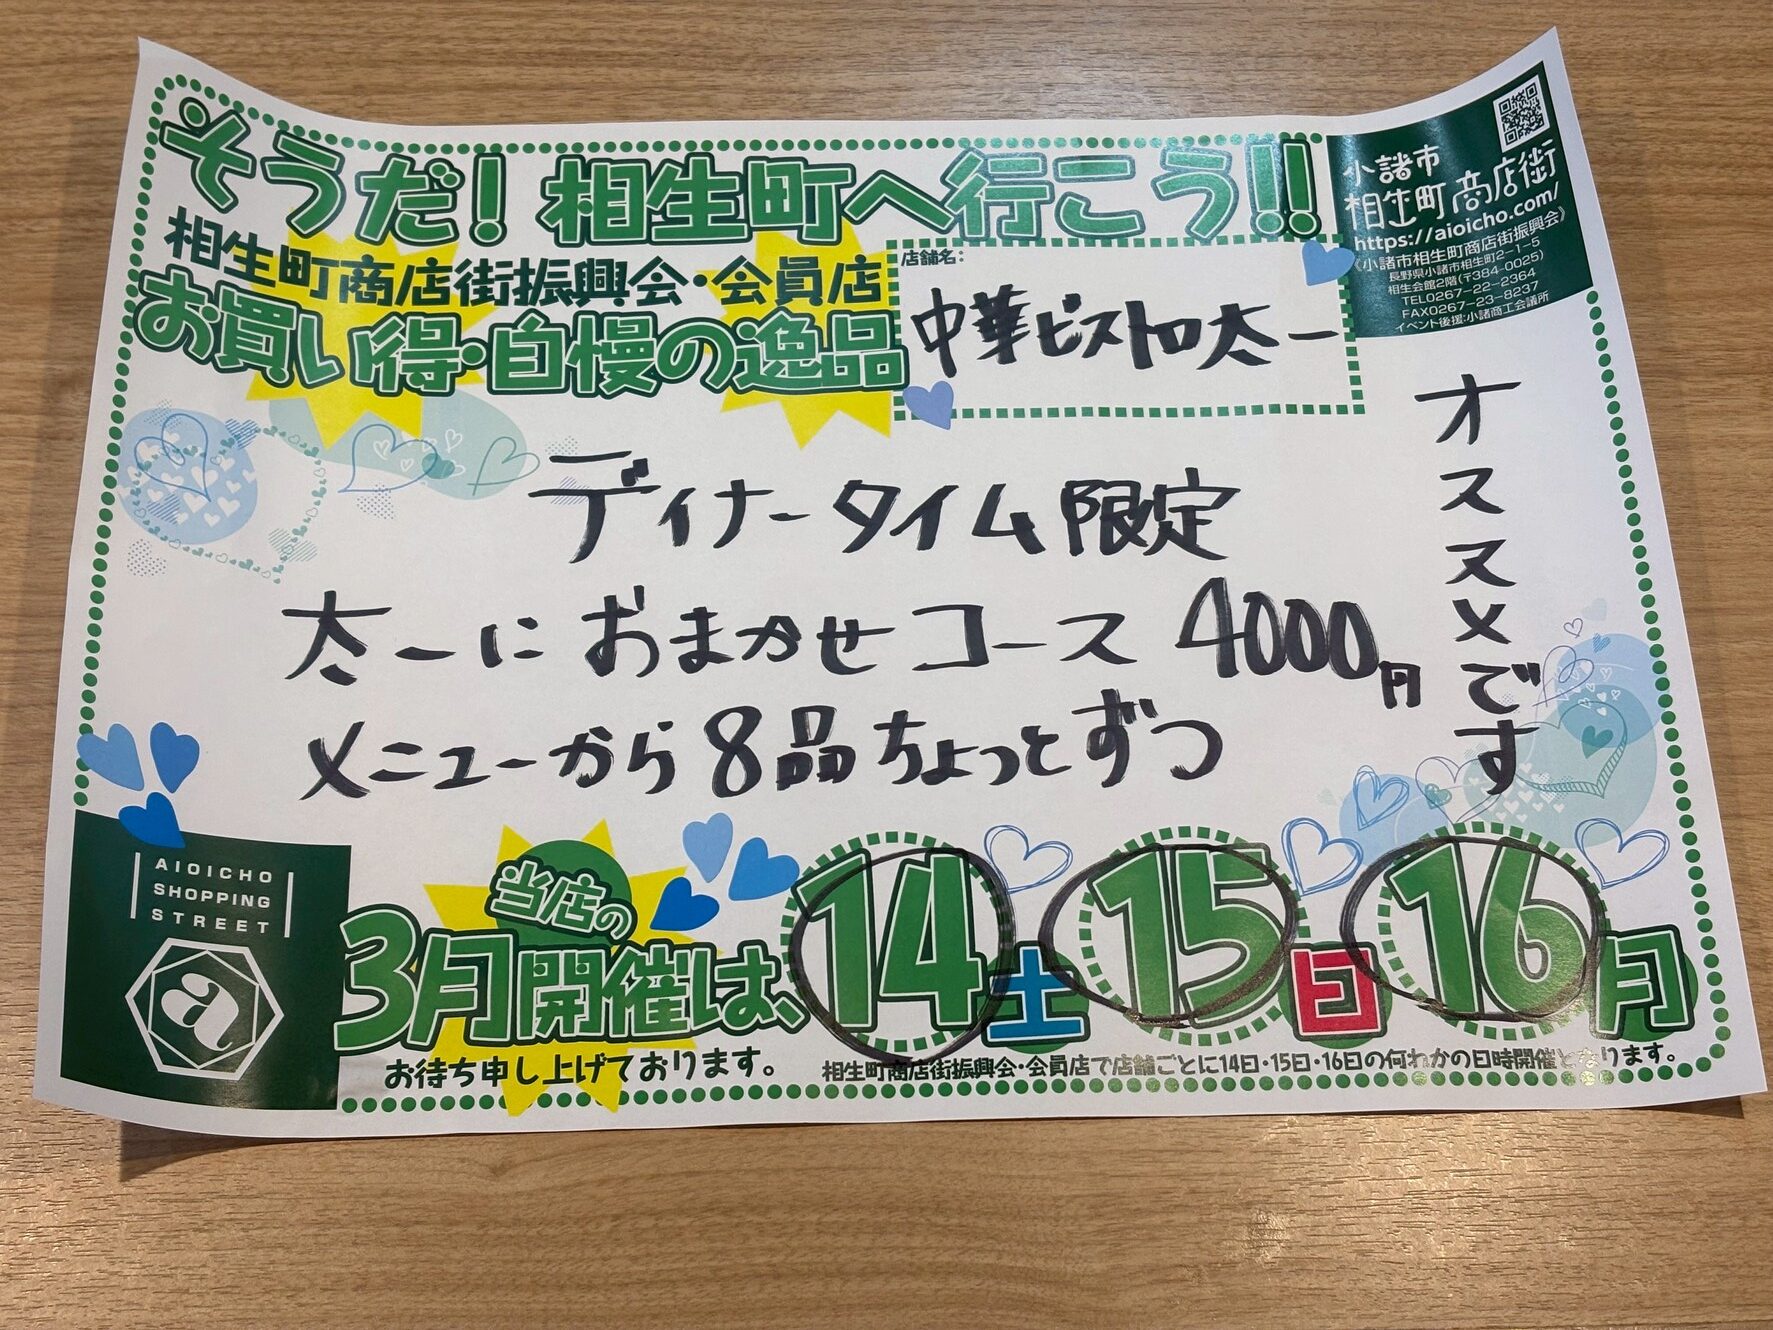 そうだ！相生町へ行こう!!
相生町商店街振興会・会員店
お買い得・自慢の逸品
店舗名：
中華ビストロ太一
小諸市
相生町商店街
https://aioicho.com/
《小諸市相生町商店街振興会》
長野県小諸市相生町2-1-5
相生会館2階(〒384-0025)
TEL0267-22-2364
FAX0267-23-8237
イベント後援:小諸商工会議所
ディナータイム限定
太一におまかせコース 4000円
メニューから8品ちょっとずつ
オススメです
AIOICHO
SHOPPING
STREET
a
当店の
3月開催は、14土15日16月
お待ち申し上げております。
相生町商店街振興会・会員店で店舗ごとに14日・15日・16日の何れかの日時開催となります。